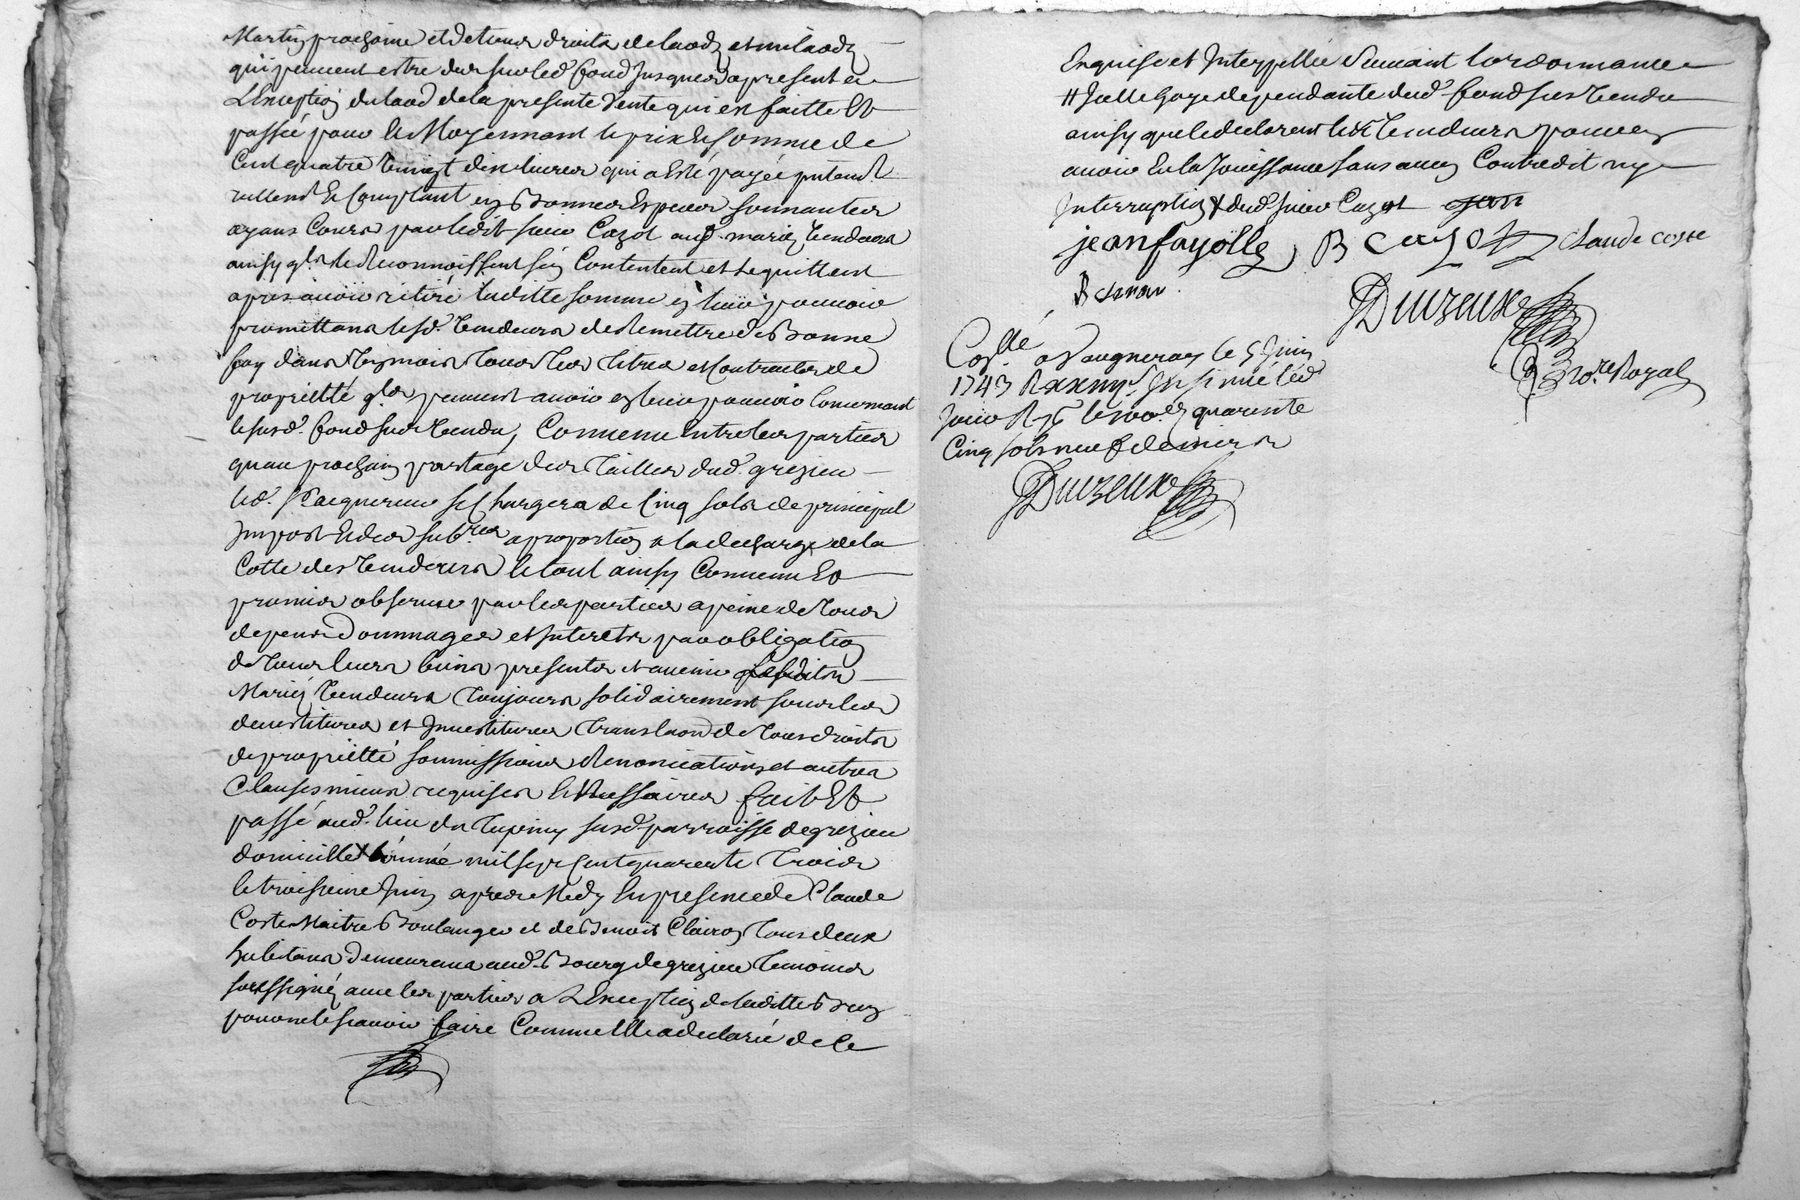 Martin prochaine et de tous droits de laodz et milaodz
qui peuvent estre dus sur led. fond jusques a present a
L'Exception du laod de la presente Vente qui est faitte Et
passée pour et Moyennant le prix Et somme de
Cent quatre vingt dix livres qui a Esté payée
Et Comptant en Bonnes Especes sonnantes
ayans Cours par ledit sieur Cazot aud. mariez Vendeurs
ainsy qls le Reconnoissent s'en Contentent et le quittent
apres avoir retiré laditte somme en leur pouvoir
promettans lesd. Vendeurs de Remettre de Bonne
foy dans mois tous les titres et Contractes de
proprietté qls peuvent avoir en leur pouvoir Concernant
le susd. fond sus Vendu, Convenu Entre les parties
qu'au prochain partage des Tailles dud. grezieu
led. sr acquereur se Chargera de Cinq sols de principal
Impost Et des subres a proportion a la decharge de la
Cotte des Vendeurs le tout ainsy Convenu Et
promis observer par les parties a peine de tous
depens Dommages et Interets par obligation
de tous leurs biens presents et avenir
Mariez Vendeurs toujours solidairement sous les
devestitures et Investitures translaon de tous droits
de proprietté soumissions Renonciations et autres
Clauses mieux requises et Necessaires fait Et
passé aud. lieu du Tupiny susd. parroisse de grezieu
domicille X L'année mil sept Cent quarente Trois
le troisieme Juin apres Midy En presence de Claude
Coste Maitre Boulanger et de Benoit Clairon tous deux
habitans Demeurans aud. Bourg de grezieu temoins
soussignés avec les parties a L'Exception de laditte
pour ne le scavoir faire Comme Elle a declaré de ce
Enquise et Interpellée suivant l'ordonnance
# dependante dud. fond sus Vendu
ainsy que le declarent lesd. Vendeurs pour en
avoir Eu la Jouissance sans aucun Contredit ny
Interruption X dud. sieur Cazot
jean fayolle B Cazot Claude coste
B Cleron
DuVzeuxe
Nore Royal
Collé a Vaugneray le 5 Juin
1743 R Insinué led.
Jour R le 100e quarente
Cinq sols neuf deniers
DuVzeuxe